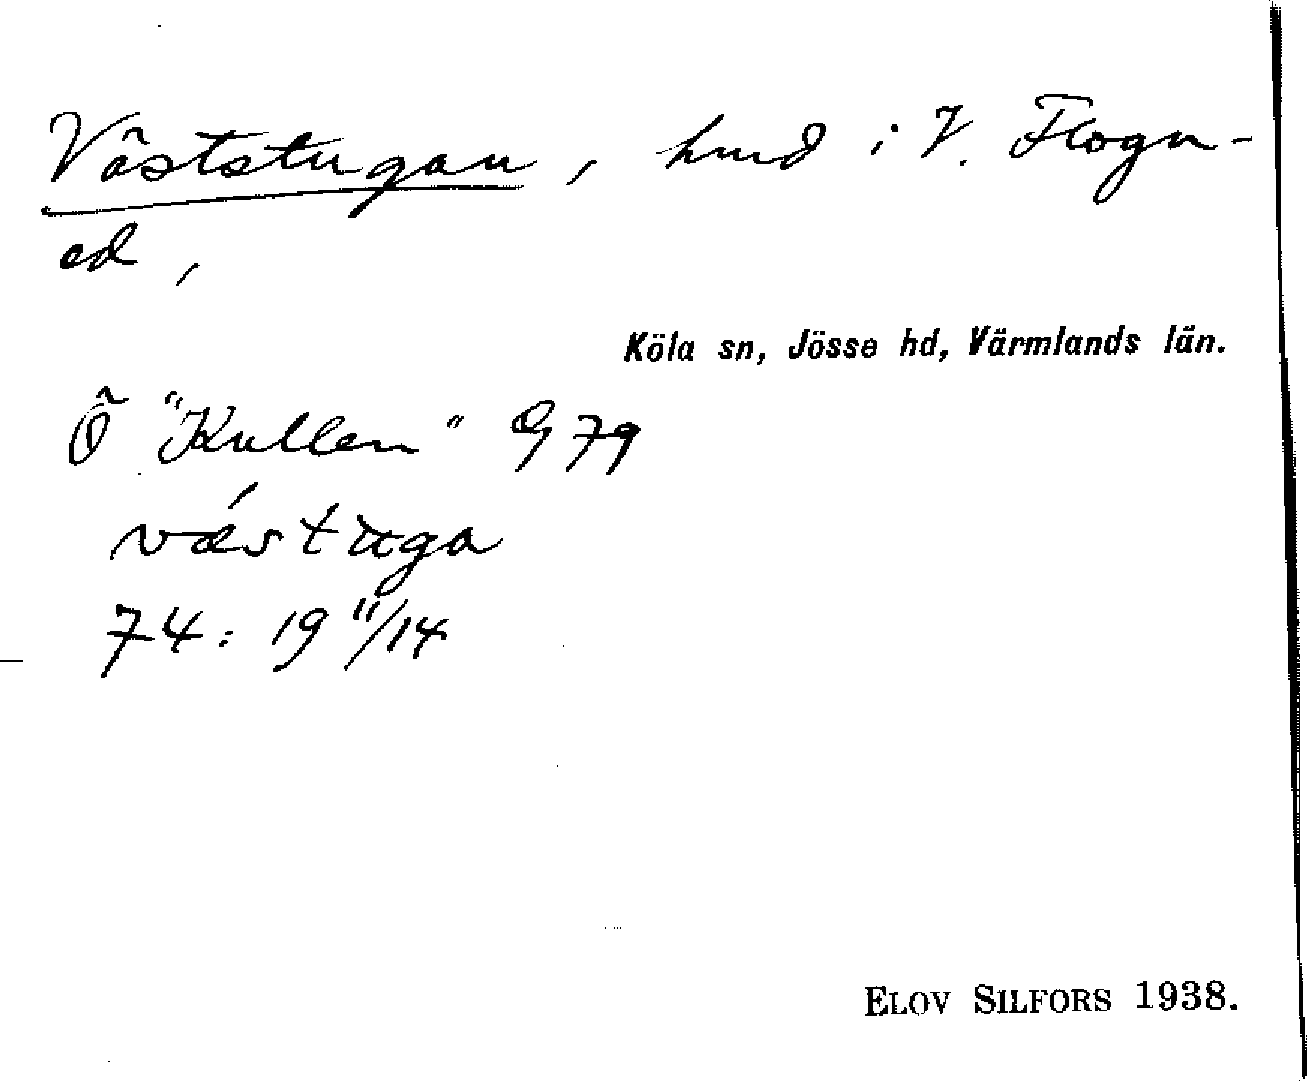 Väststugan, hmd i V. Flogn-
ed,
Köla sn, Jösse hd, Värmlands län.
Ö "Kullen" G 79
vǽstuga
74: 19 11/14
ELOV SILFORS 1938.